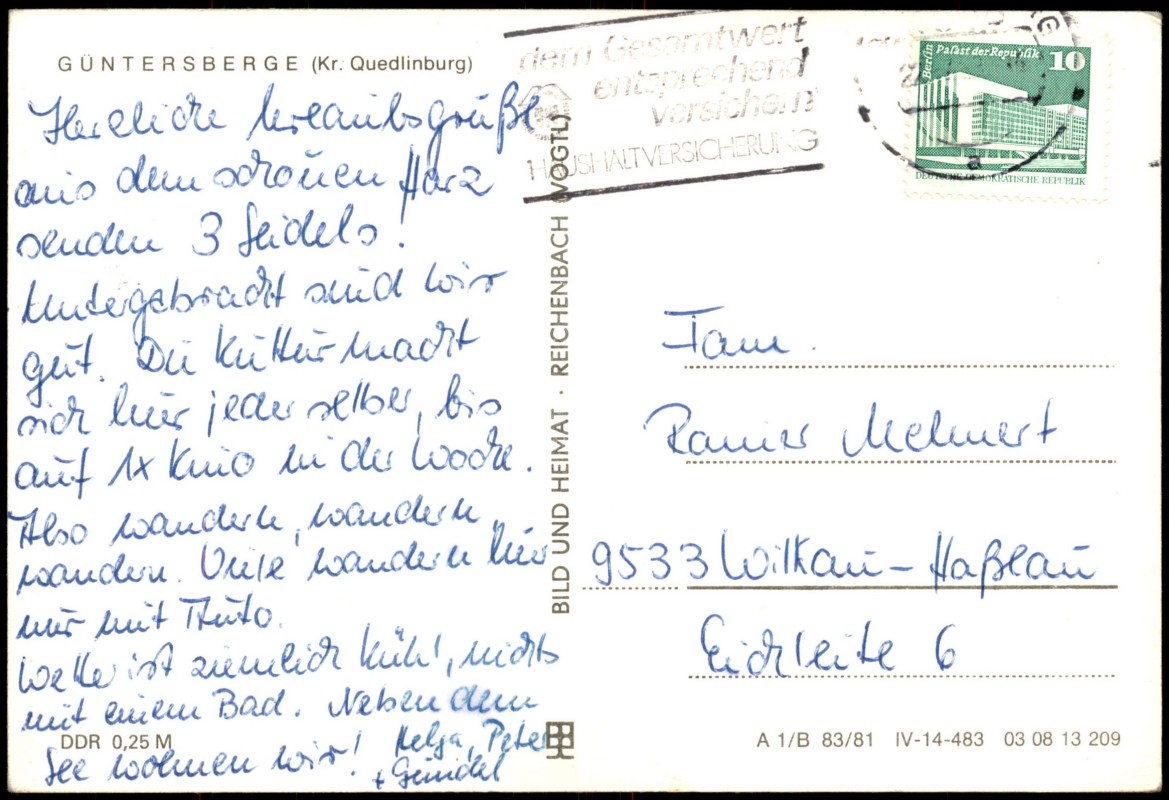 GÜNTERSBERGE (Kr. Quedlinburg)
Herzliche Urlaubsgrüße
aus dem schönen Harz
senden 3 Seidels!
Untergebracht sind wir
gut. Die Kultur macht
sich hier jeder selber, bis
auf 1x Kino in der Woche.
Also wandern, wandern,
wandern. Viele wandern hier
nur mit Auto.
Wetter ist ziemlich kühl, nichts
mit einem Bad. Neben dem
See wohnen wir!
Helga, Peter
+ Gundel
DDR 0,25 M
BILD UND HEIMAT · REICHENBACH (VOGTL)
dem Gesamtwert
entsprechend
versichern
HAUSHALTVERSICHERUNG
Berlin Palast der Republik
10
DEUTSCHE DEMOKRATISCHE REPUBLIK
a
Fam.
Rainer Mehnert
9533 Wilkau-Haßlau
Eichleite 6
A 1/B 83/81 IV-14-483 03 08 13 209